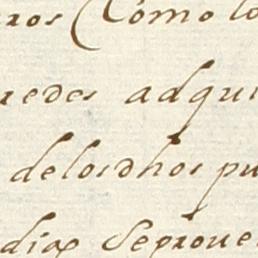 ros (Como lo
redes adqui
delosdhos pu
dias Seproue